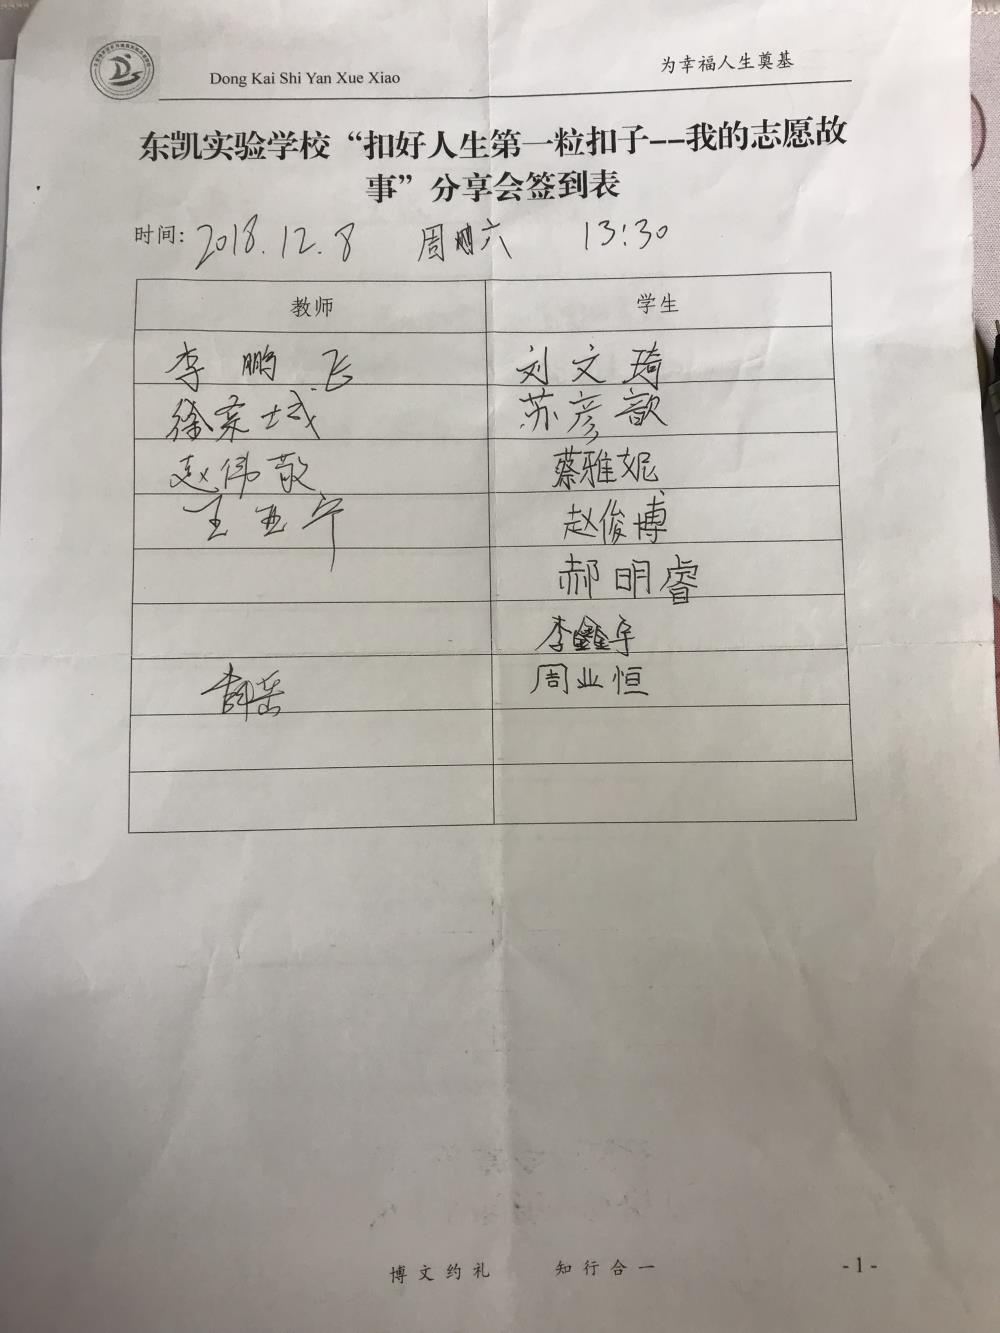 Dong Kai Shi Yan Xue Xiao 为幸福人生奠基
东凯实验学校“扣好人生第一粒扣子--我的志愿故
事”分享会签到表
时间: 2018.12.8 周六 13:30
教师 学生
李鹏飞 刘文琦
苏彦歆
赵伟敬 蔡雅妮
王亚宁 赵俊博
郝明睿
李鑫宇
周业恒
博文约礼 知行合一 - 1 -